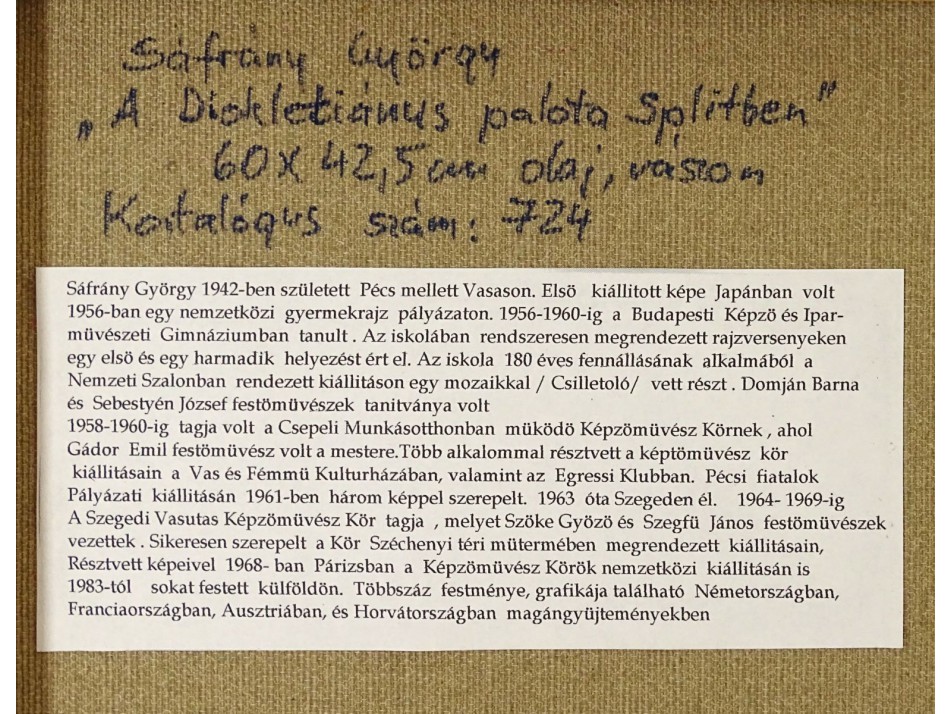 Sáfrány György
„A Diokletiánus palota Splitben”
60 x 42,5 cm olaj, vászon
Katalógus szám: 724
Sáfrány György 1942-ben született Pécs mellett Vasason. Elsö kiállitott képe Japánban volt
1956-ban egy nemzetközi gyermekrajz pályázaton. 1956-1960-ig a Budapesti Képzö és Ipar-
müvészeti Gimnáziumban tanult . Az iskolában rendszeresen megrendezett rajzversenyeken
egy elsö és egy harmadik helyezést ért el. Az iskola 180 éves fennállásának alkalmából a
Nemzeti Szalonban rendezett kiállitáson egy mozaikkal / Csilletoló/ vett részt . Domján Barna
és Sebestyén József festömüvészek tanitványa volt
1958-1960-ig tagja volt a Csepeli Munkásotthonban müködö Képzömüvész Körnek , ahol
Gádor Emil festömüvész volt a mestere.Több alkalommal résztvett a képtömüvész kör
kiállitásain a Vas és Fémmü Kulturházában, valamint az Egressi Klubban. Pécsi fiatalok
Pályázati kiállitásán 1961-ben három képpel szerepelt. 1963 óta Szegeden él. 1964- 1969-ig
A Szegedi Vasutas Képzömüvész Kör tagja , melyet Szöke Gyözö és Szegfü János festömüvészek
vezettek . Sikeresen szerepelt a Kör Széchenyi téri mütermében megrendezett kiállitásain,
Résztvett képeivel 1968- ban Párizsban a Képzömüvész Körök nemzetközi kiállitásán is
1983-tól sokat festett külföldön. Többszáz festménye, grafikája található Németországban,
Franciaországban, Ausztriában, és Horvátországban magángyüjteményekben